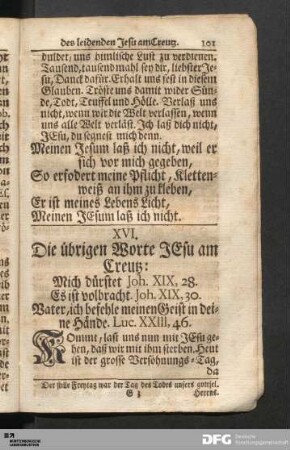 des leidenden Jesu am Creutz. 101
duldet, uns himlische Lust zu verdienen.
Tausend, tausend mahl sey dir, liebster Je-
su, Danck dafür. Erhalt uns fest in diesem
Glauben. Tröste uns damit wider Sün-
de, Todt, Teuffel und Hölle. Verlaß uns
nicht, wenn wir die Welt verlassen, wenn
uns alle Welt verläst. Ich laß dich nicht,
JEsu, du segnest mich denn.
Meinen Jesum laß ich nicht, weil er
sich vor mich gegeben,
So erfodert meine Pflicht, Kletten-
weiß an ihm zu kleben,
Er ist meines Lebens Licht,
Meinen JEsum laß ich nicht.
XVI.
Die übrigen Worte JEsu am
Creutz:
Mich dürstet Joh. XIX, 28.
Es ist volbracht. Joh. XIX, 30.
Vater, ich befehle meinen Geist in dei-
ne Hände. Luc. XXIII, 46.
Kommt, last uns nun mit JEsu ge-
hen, daß wir mit ihm sterben. Heut
ist der grosse Versöhnungs-Tag,
da
Der stille Freytag war der Tag des Todes unsers
G 3 Herrns.
DFG Deutsche
Forschungsgemeinschaft